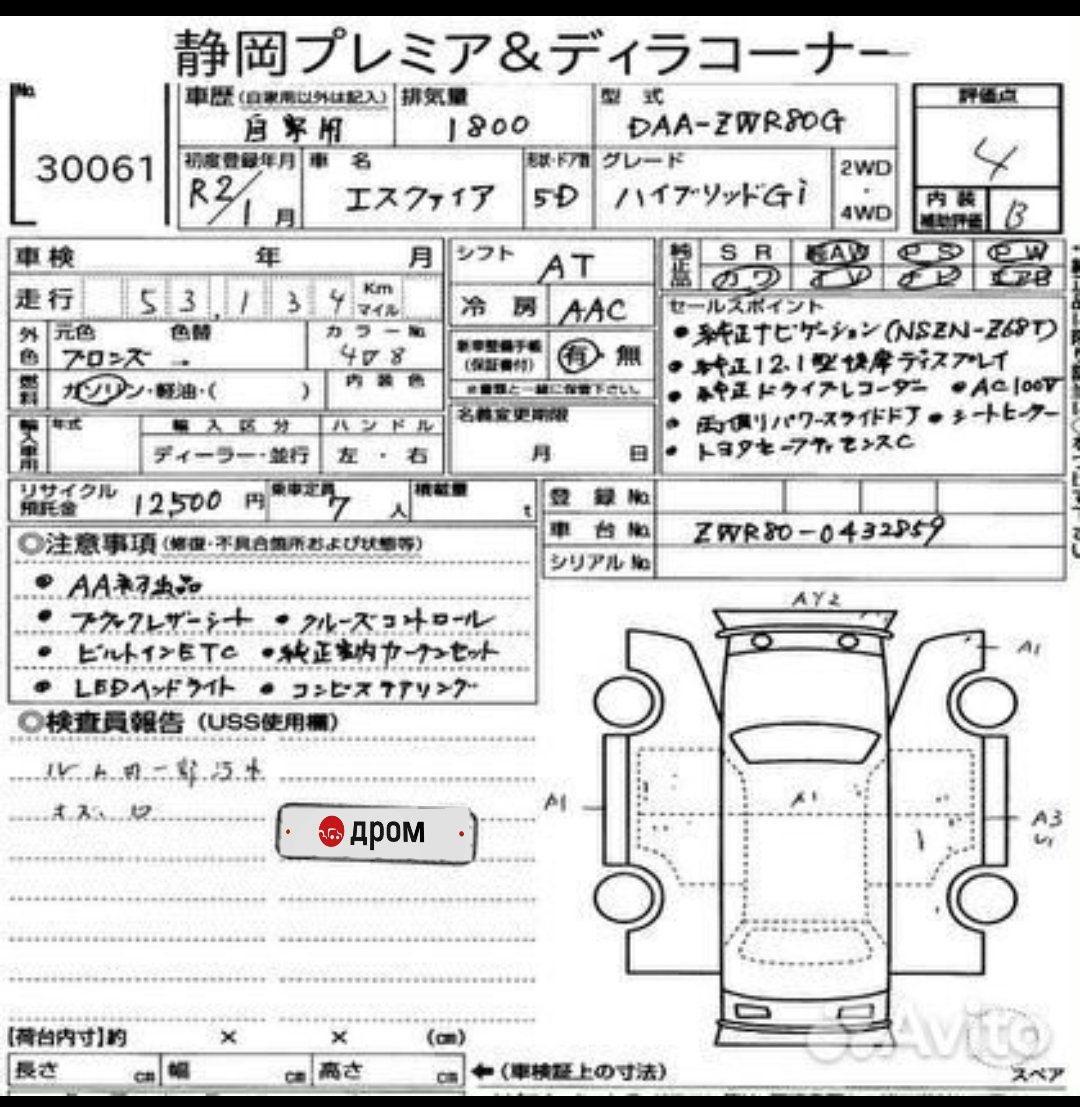 静岡プレミア&ディラコーナー
No.
30061
車歴(自家用以外は記入) 自家用
排気量 1800
型式 DAA-ZWR80G
評価点 4
初度登録年月 R2/1月
車名 エスクァイア
形状・ドア数 5D
グレード ハイブリッドGi
2WD
・
4WD
内装
補助評価 B
車検 年 月
走行 53,134 Km マイル
シフト AT
冷房 AAC
純正品 SR AW PS PW
カワ TV ナビ エアB
外色 元色 ブロンズ → 色替
カラーNo.
内装色
燃料 ガソリン・軽油・( )
新車整備手帳
(保証書付) 有・無
※書類と一緒に保管下さい。
名義変更期限
月 日
輸入車用 年式
輸入区分
ディーラー・並行
ハンドル
左・右
セールスポイント
● 純正ナビゲーション(NSZN-Z68T)
● 純正12.1型後席ディスプレイ
● 純正ドライブレコーダー ● AC100V
● 両側パワースライドドア ● シートヒーター
● トヨタセーフティセンスC
リサイクル
預託金 12,500 円
乗車定員 7 人
積載量 t
登録No.
車台No. ZWR80-0432859
シリアルNo.
◎注意事項(修復・不具合箇所および状態等)
● AA初出品
● ブラックレザーシート ● クルーズコントロール
● ビルトインETC ● 純正室内カーテンセット
● LEDヘッドライト ● コンビステアリング
◎検査員報告(USS使用欄)
дром
AY2
A1
A1
A1
A3
U1
[荷台内寸]約 × × (cm)
長さ cm 幅 cm 高さ cm ←(車検証上の寸法)
スペア
Avito